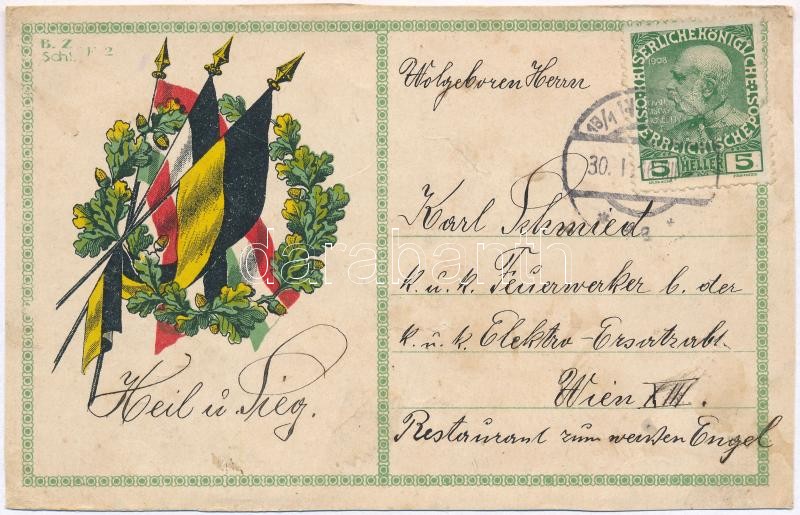 B. Z.
Schl. F 2
Heil u Sieg.
Wolgeboren Herrn
Karl Schmied
k. u. k. Feuerwerker b. der
k. u. k. Elektro-Ersatzabt.
Wien XIII.
Restaurant zum weissen Engel
KAISERLICHEKÖNIGLICHE
ÖSTERREICHISCHE
1908
5 HELLER 5
18/1 W
30. I
darabanth